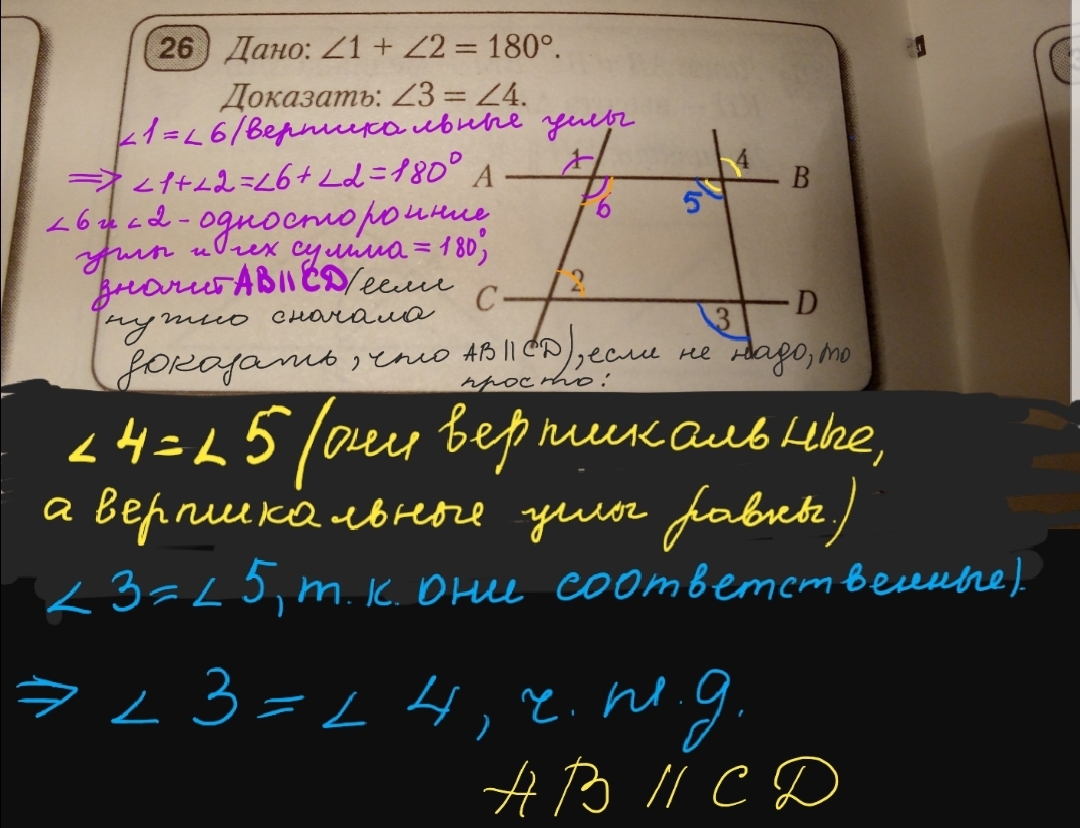 26 Дано: ∠1 + ∠2 = 180°.
Доказать: ∠3 = ∠4.
∠1=∠6/вертикальные углы
⇒ ∠1+∠2=∠6+∠2=180°
∠6 и ∠2 - односторонние
углы и их сумма = 180°,
значит AB∥CD/если
нужно сначала
доказать, что AB∥CD), если не надо, то
просто:
A 1 4 B
6 5
C 2 3 D
∠4=∠5/они вертикальные,
а вертикальные углы равны.)
∠3=∠5, т.к. они соответственные).
⇒ ∠3=∠4, ч.т.д.
AB∥CD